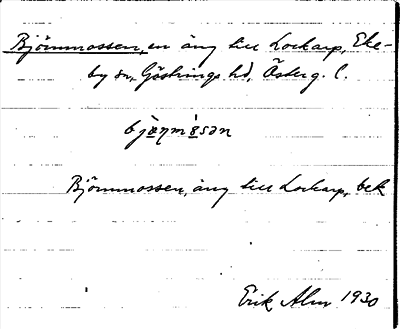 Björnmossen, en äng till Lockarp, Eke-
by sn, Göstrings hd, Österg. l.
bjö̀ṇmòsən
Björnmossen, äng till Lockarp, bek
Erik Alm 1930